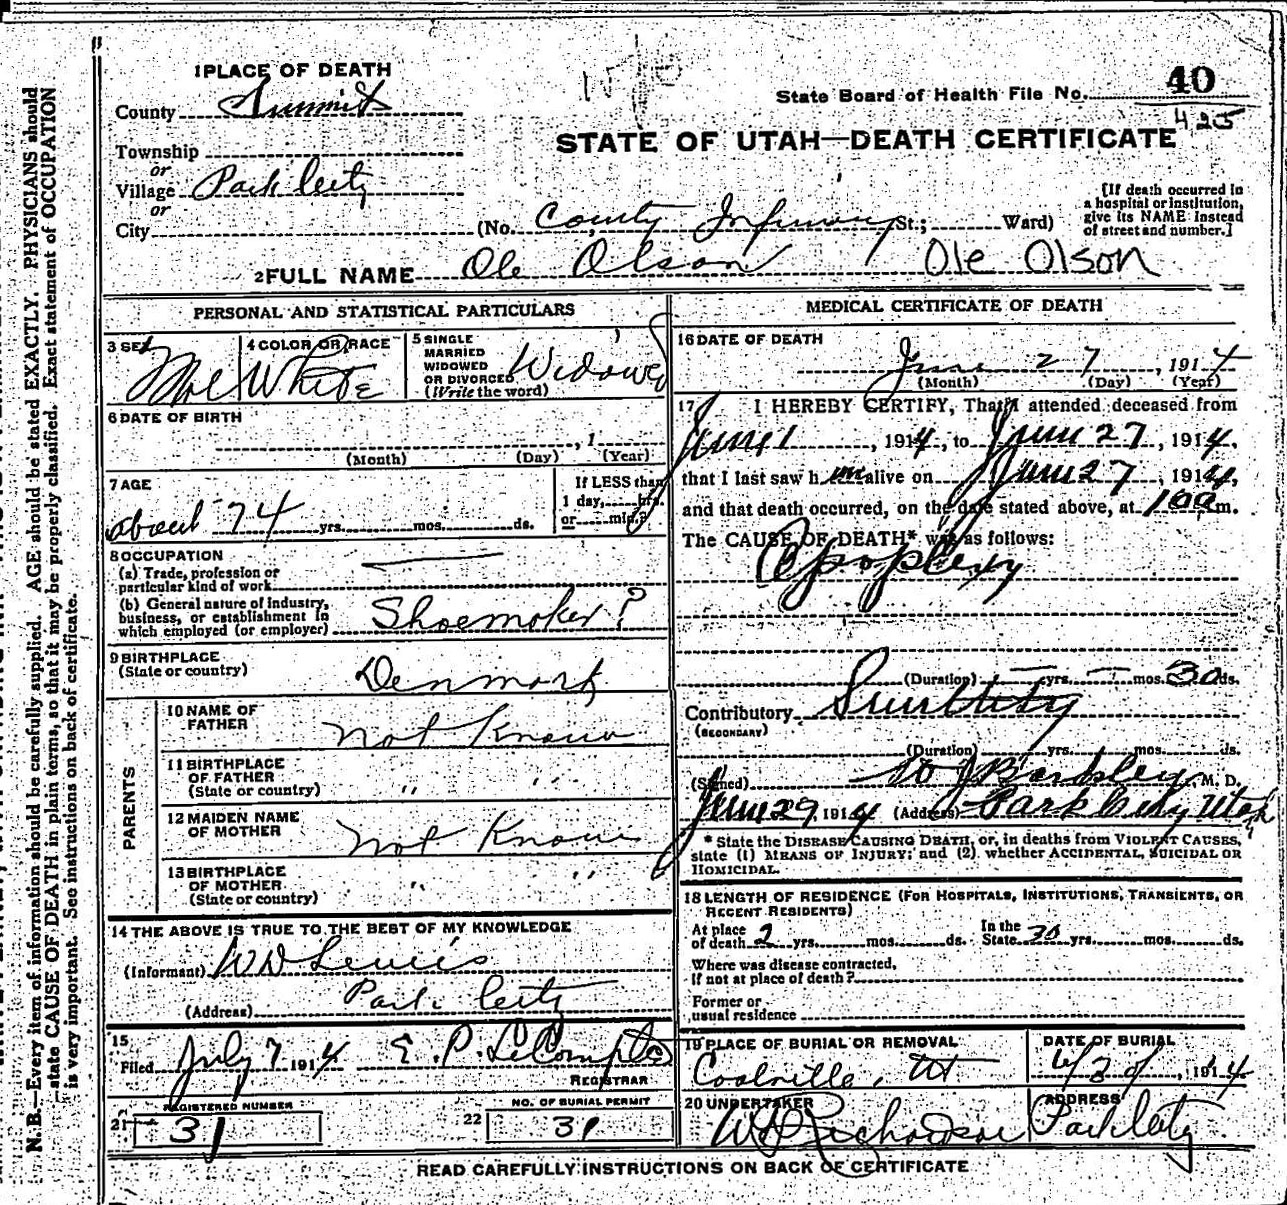 1 PLACE OF DEATH
County Summit
State Board of Health File No. 40
425
STATE OF UTAH—DEATH CERTIFICATE
Township
or
Village Park City
or
City (No. County Infirmary St.; Ward)
[If death occurred in
a hospital or institution,
give its NAME instead
of street and number.]
2 FULL NAME Ole Olson Ole Olson
PERSONAL AND STATISTICAL PARTICULARS
3 SEX Male
4 COLOR OR RACE White
5 SINGLE
MARRIED
WIDOWED
OR DIVORCED
(Write the word) Widowed
6 DATE OF BIRTH
, 1
(Month) (Day) (Year)
7 AGE
about 74 yrs. mos. ds.
If LESS than
1 day, hrs.
or min.?
8 OCCUPATION
(a) Trade, profession or
particular kind of work —
(b) General nature of industry,
business, or establishment in
which employed (or employer) Shoemaker?
9 BIRTHPLACE
(State or country) Denmark
PARENTS
10 NAME OF
FATHER Not Known
11 BIRTHPLACE
OF FATHER
(State or country) " "
12 MAIDEN NAME
OF MOTHER Not Known
13 BIRTHPLACE
OF MOTHER
(State or country) " "
14 THE ABOVE IS TRUE TO THE BEST OF MY KNOWLEDGE
(Informant) W D Lewis
(Address) Park City
15
Filed July 7 1914 E. P. LeCompte
REGISTRAR
REGISTERED NUMBER
21 31
NO. OF BURIAL PERMIT
22 31
MEDICAL CERTIFICATE OF DEATH
16 DATE OF DEATH
June 27, 1914
(Month) (Day) (Year)
17 I HEREBY CERTIFY, That I attended deceased from
June 1, 1914, to June 27, 1914,
that I last saw him alive on June 27, 1914,
and that death occurred, on the date stated above, at m.
The CAUSE OF DEATH* was as follows:
Apoplexy
(Duration) — yrs. — mos. 30 ds.
Contributory
(SECONDARY)
(Duration) yrs. mos. ds.
(Signed) Bardsley, M. D.
June 29, 1914 (Address) Park City Utah
* State the DISEASE CAUSING DEATH, or, in deaths from VIOLENT CAUSES,
state (1) MEANS OF INJURY; and (2) whether ACCIDENTAL, SUICIDAL OR
HOMICIDAL.
18 LENGTH OF RESIDENCE (FOR HOSPITALS, INSTITUTIONS, TRANSIENTS, OR
RECENT RESIDENTS)
At place
of death 2 yrs. mos. ds.
In the
State 30 yrs. mos. ds.
Where was disease contracted,
If not at place of death?
Former or
usual residence
19 PLACE OF BURIAL OR REMOVAL
Coalville, Ut
DATE OF BURIAL
, 1914
20 UNDERTAKER
W D Richardson
ADDRESS
Park City
READ CAREFULLY INSTRUCTIONS ON BACK OF CERTIFICATE
N. B.—Every item of information should be carefully supplied. AGE should be stated EXACTLY. PHYSICIANS should
state CAUSE OF DEATH in plain terms, so that it may be properly classified. Exact statement of OCCUPATION
is very important. See instructions on back of certificate.